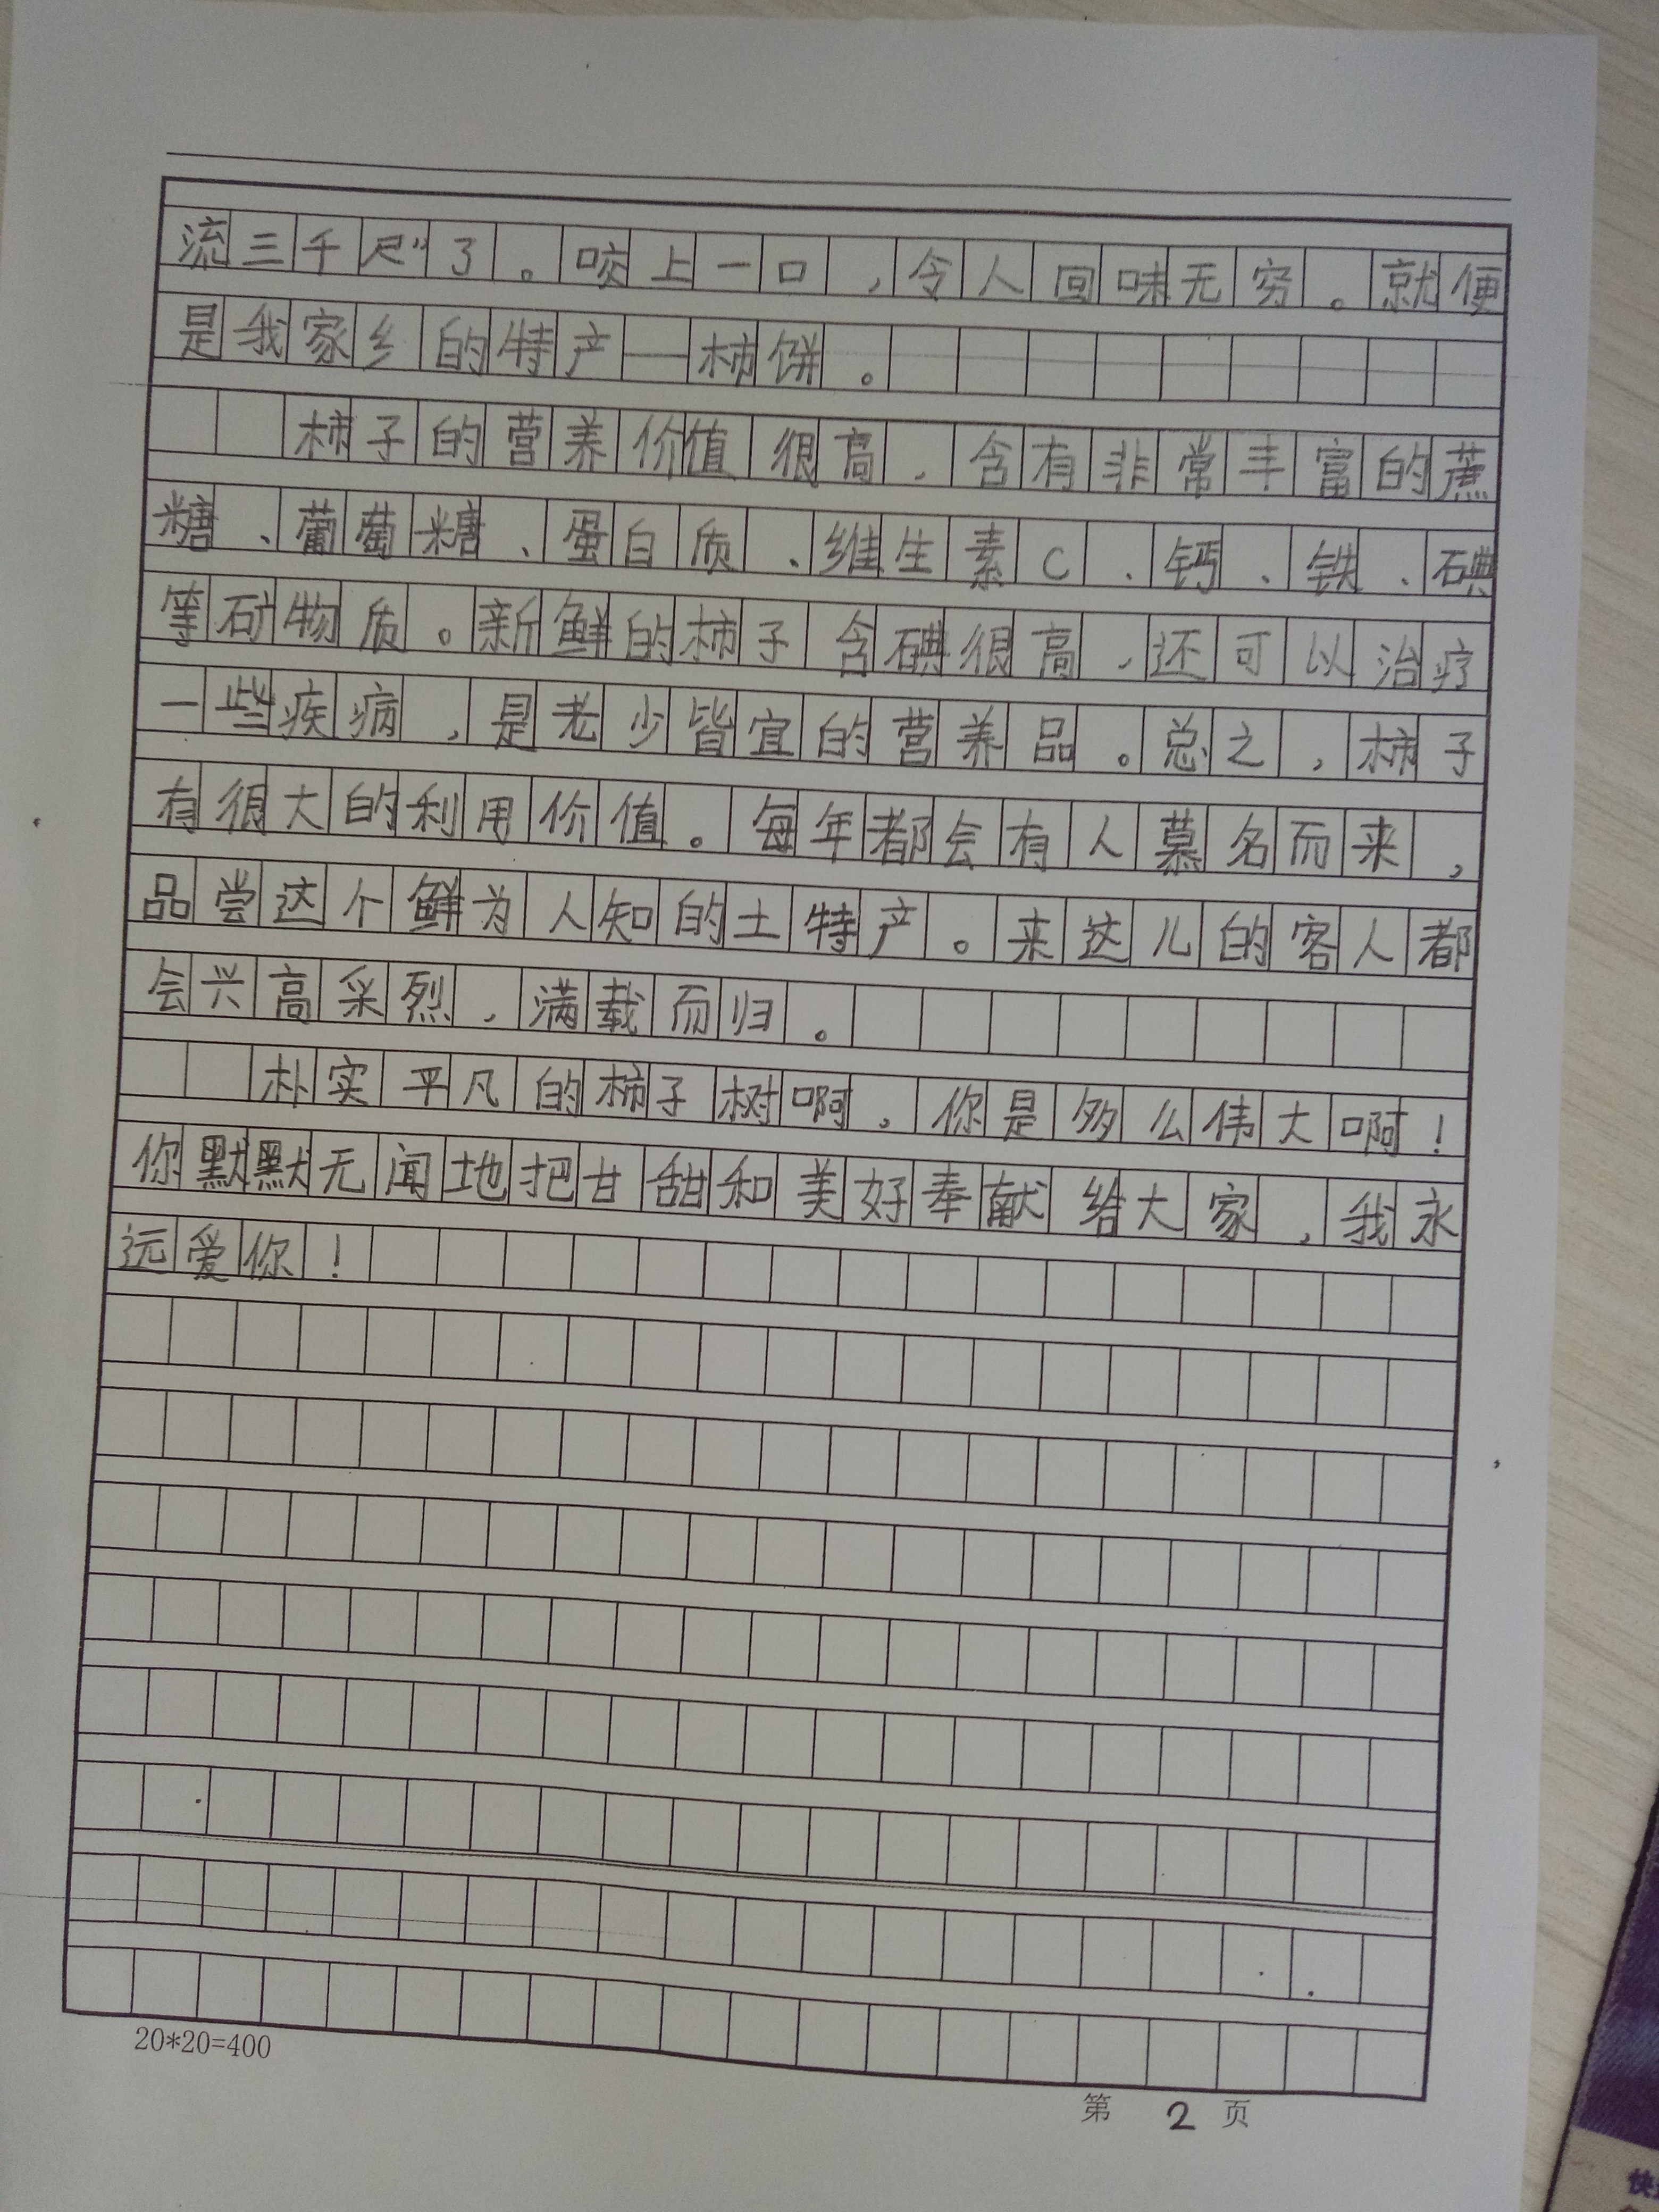 流三千尺”了。咬上一口，令人回味无穷。就便
是我家乡的特产—柿饼。
柿子的营养价值很高，含有非常丰富的蔗
糖、葡萄糖、蛋白质、维生素C、钙、铁、碘
等矿物质。新鲜的柿子含碘很高，还可以治疗
一些疾病，是老少皆宜的营养品。总之，柿子
有很大的利用价值。每年都会有人慕名而来，
品尝这个鲜为人知的土特产。来这儿的客人都
会兴高采烈，满载而归。
朴实平凡的柿子树啊，你是多么伟大啊！
你默默无闻地把甘甜和美好奉献给大家，我永
远爱你！
20*20=400
第 2 页
快